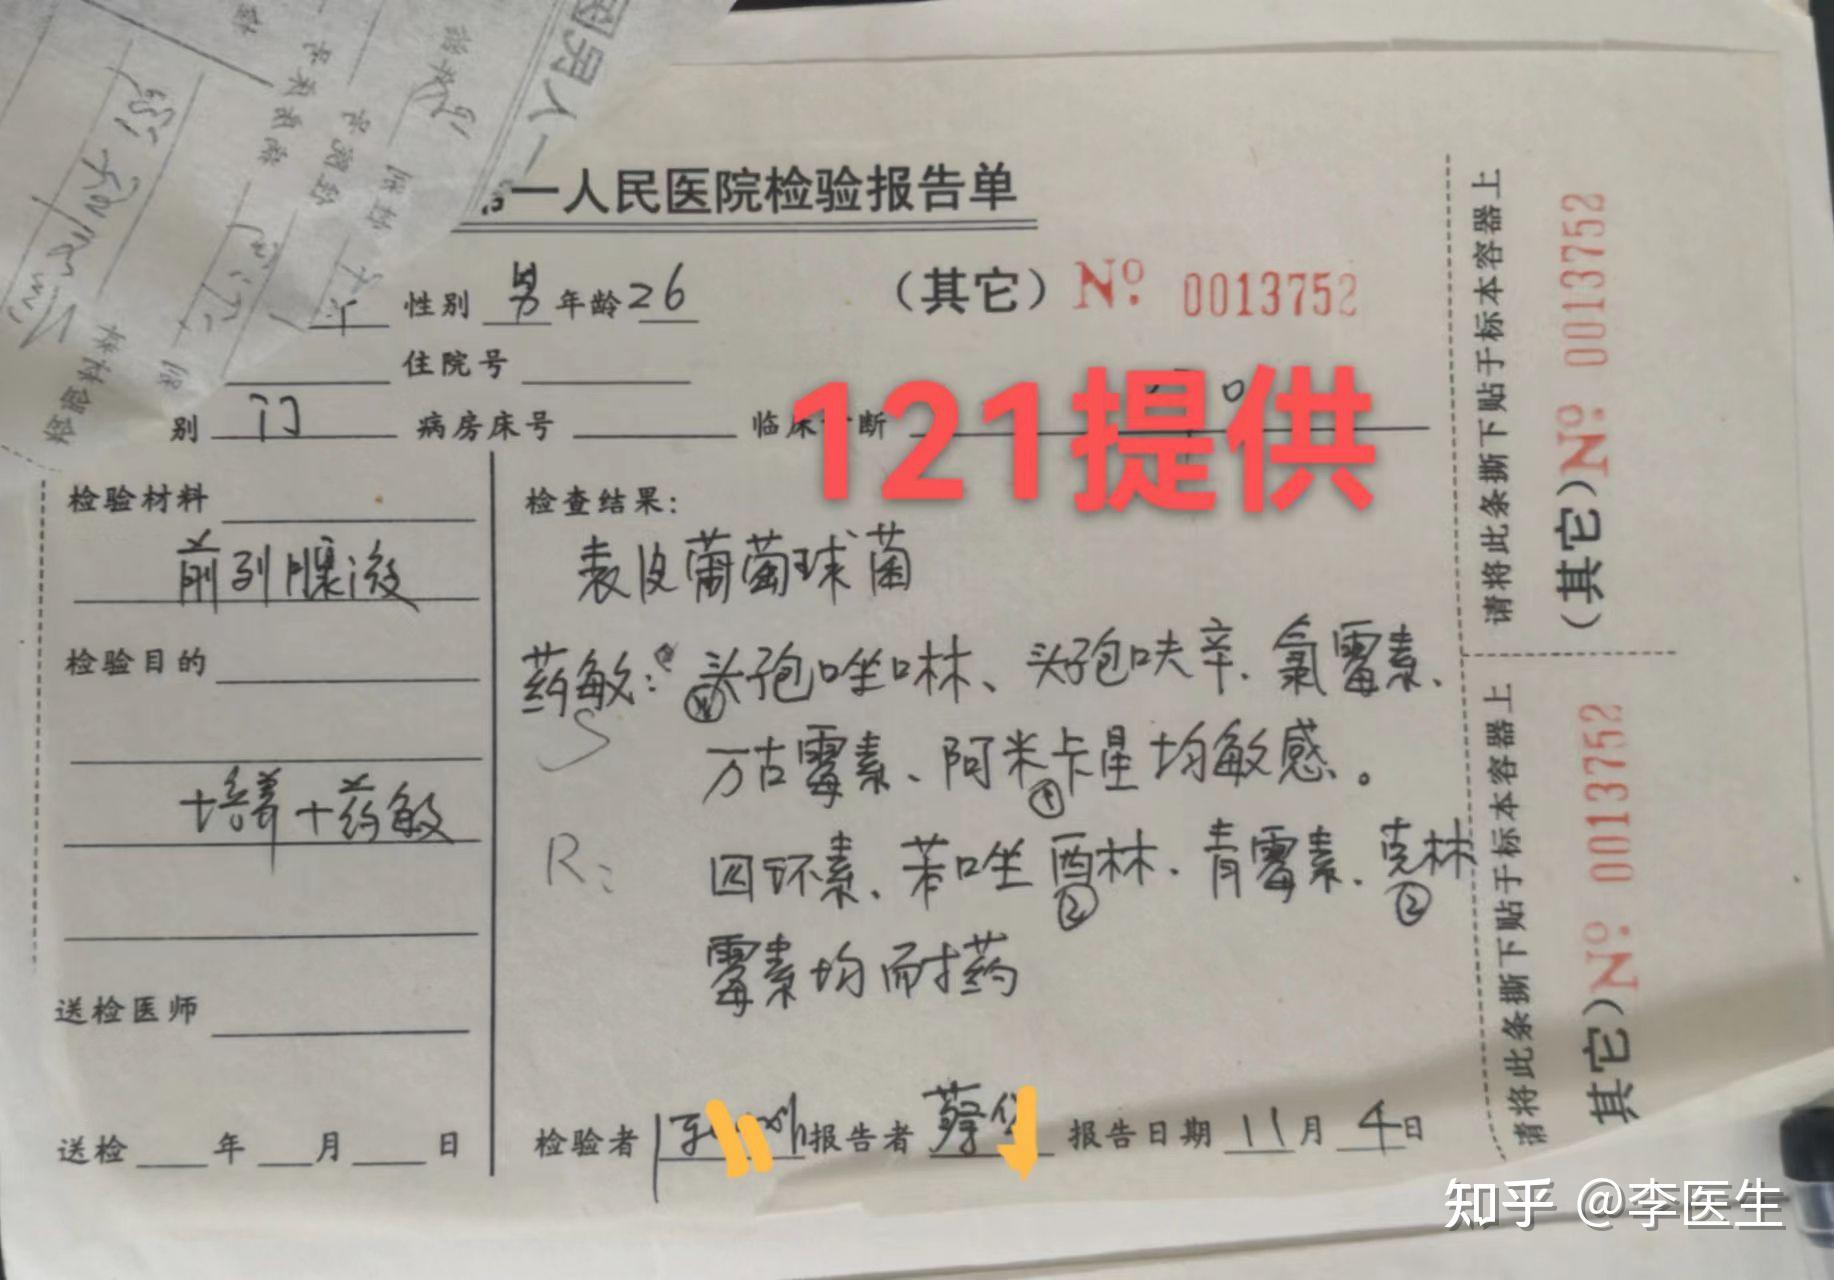 一人民医院检验报告单
性别 男 年龄 26 （其它）No. 0013752
住院号
121提供
别 门 病房床号 临床 断
检验材料
前列腺液
检验目的
培养+药敏
送检医师
送检 年 月 日
检查结果：
表皮葡萄球菌
药敏： 头孢唑啉林、头孢呋辛、氯霉素、
S
④
万古霉素、阿米卡星均敏感。
①
R： 四环素、苯唑西林、青霉素、克林
② ②
霉素均耐药
检验者 报告者 蔡 报告日期 11 月 4 日
请将此条撕下贴于标本容器上
（其它）No. 0013752
请将此条撕下贴于标本容器上
其它）No. 0013752
知乎 @李医生